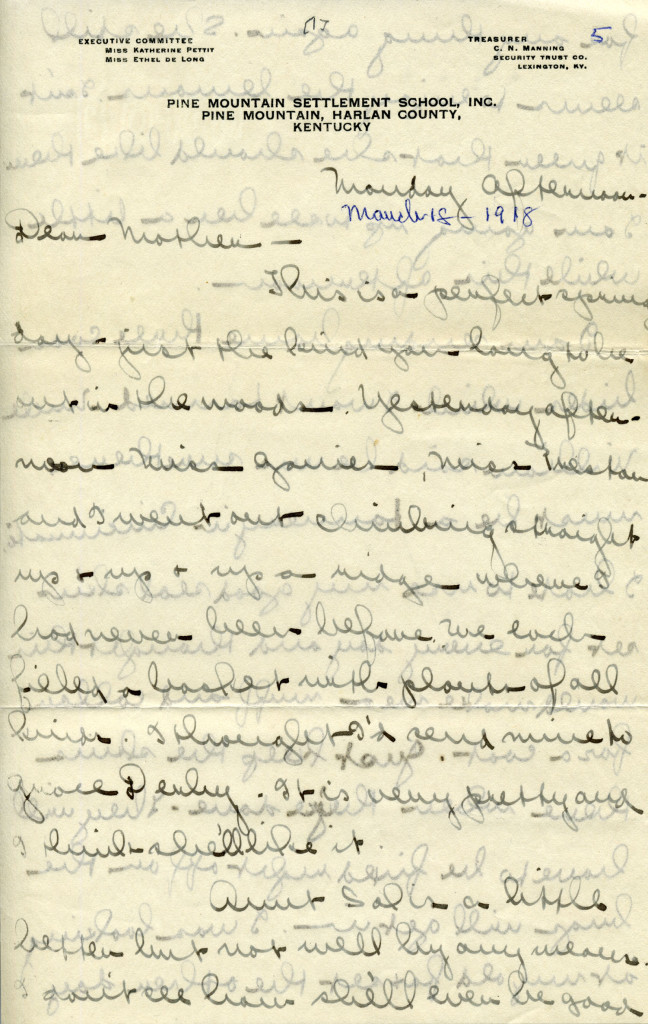 17
5
EXECUTIVE COMMITTEE
MISS KATHERINE PETTIT
MISS ETHEL DE LONG
TREASURER
C. N. MANNING
SECURITY TRUST CO.
LEXINGTON, KY.
PINE MOUNTAIN SETTLEMENT SCHOOL, INC.
PINE MOUNTAIN, HARLAN COUNTY,
KENTUCKY
Monday afternoon-
March 18 - 1918
Dear Mother -
This is a perfect spring
day - just the kind you long to be
out in the woods. Yesterday after-
noon Miss Gaines, Miss
and I went out climbing straight
up & up & up a ridge where I
had never been before. We each
filled a basket with plants of all
kinds. I thought I'd send mine to
Grace Derby. It is very pretty and
I think she'll like it.
Aunt Sal is a little
better but not well by any means.
I don't see how she'll ever be good